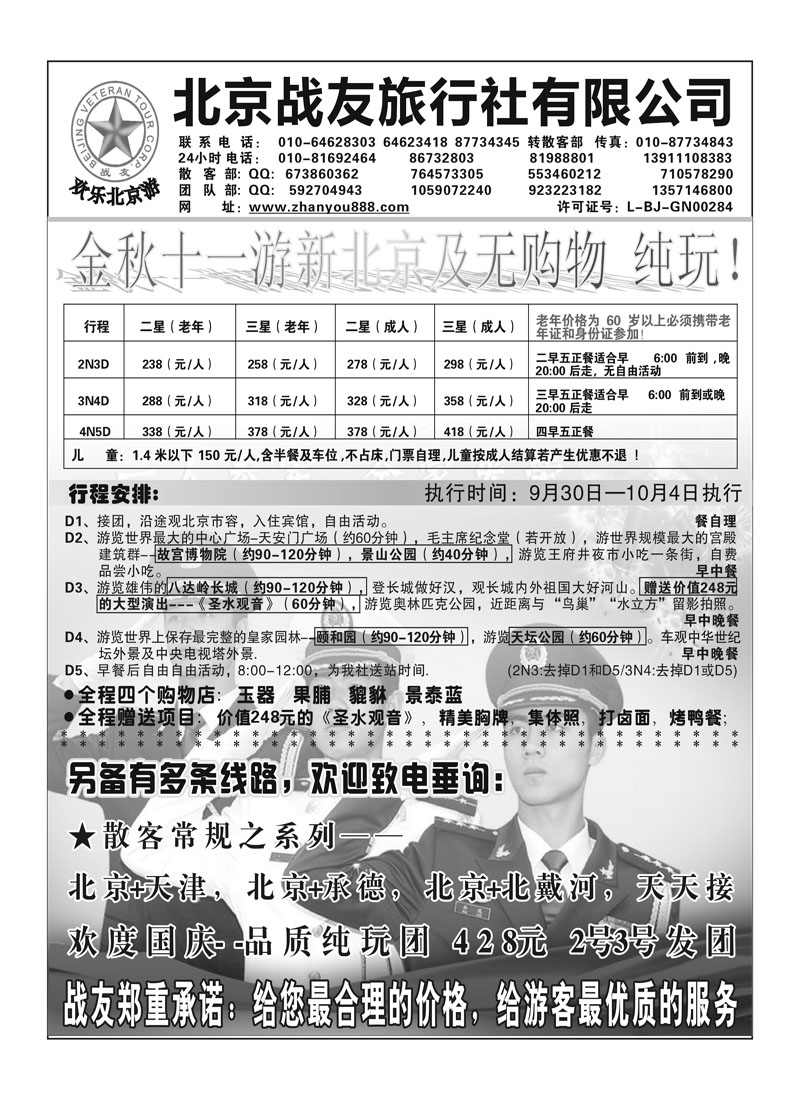 北京战友旅行社有限公司
BEIJING VETERAN TOUR CORP.
战友
欢乐北京游
联系电话： 010-64628303 64623418 87734345 转散客部 传真：010-87734843
24小时电话： 010-81692464 86732803 81988801 13911108383
散客部：QQ： 673860362 764573305 553460212 710578290
团队部：QQ： 592704943 1059072240 923223182 1357146800
网址：www.zhanyou888.com 许可证号：L-BJ-GN00284
金秋十一游新北京及无购物 纯玩！
行程 二星（老年） 三星（老年） 二星（成人） 三星（成人） 老年价格为 60 岁以上必须携带老
年证和身份证参加！
2N3D 238（元/人） 258（元/人） 278（元/人） 298（元/人） 二早五正餐适合早 6:00 前到，晚
20:00 后走，无自由活动
3N4D 288（元/人） 318（元/人） 328（元/人） 358（元/人） 三早五正餐适合早 6:00 前到或晚
20:00 后走
4N5D 338（元/人） 378（元/人） 378（元/人） 418（元/人） 四早五正餐
儿 童：1.4 米以下 150 元/人，含半餐及车位，不占床，门票自理，儿童按成人结算若产生优惠不退 ！
行程安排： 执行时间：9月30日—10月4日执行
D1、接团，沿途观北京市容，入住宾馆，自由活动。 餐自理
D2、游览世界最大的中心广场-天安门广场（约60分钟），毛主席纪念堂（若开放），游世界规模最大的宫殿
建筑群--故宫博物院（约90-120分钟），景山公园（约40分钟），游览王府井夜市小吃一条街，自费
品尝小吃。 早中餐
D3、游览雄伟的八达岭长城（约90-120分钟），登长城做好汉，观长城内外祖国大好河山。赠送价值248元
的大型演出---《圣水观音》（60分钟），游览奥林匹克公园，近距离与“鸟巢”“水立方”留影拍照。
早中晚餐
D4、游览世界上保存最完整的皇家园林--颐和园（约90-120分钟），游览天坛公园（约60分钟）。车观中华世纪
坛外景及中央电视塔外景. 早中晚餐
D5、早餐后自由自由活动，8:00-12:00，为我社送站时间. (2N3:去掉D1和D5/3N4:去掉D1或D5)
●全程四个购物店：玉器 果脯 貔貅 景泰蓝
●全程赠送项目：价值248元的《圣水观音》，精美胸牌，集体照，打卤面，烤鸭餐；
另备有多条线路，欢迎致电垂询：
★散客常规之系列——
北京+天津，北京+承德，北京+北戴河，天天接
欢度国庆--品质纯玩团 428元 2号3号发团
战友郑重承诺：给您最合理的价格，给游客最优质的服务